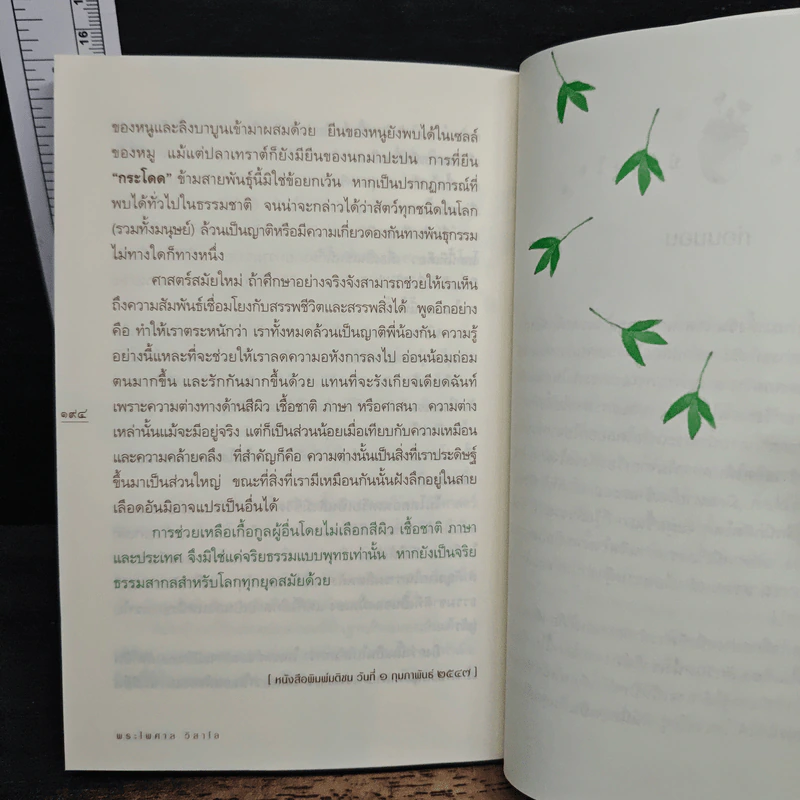 ของหนูและลิงบาบูนเข้ามาผสมด้วย ยีนของหนูยังพบได้ในเซลล์
ของหมู แม้แต่ปลาเทราต์ก็ยังมียีนของนกมาปะปน การที่ยีน
“กระโดด” ข้ามสายพันธุ์นี้มิใช่ข้อยกเว้น หากเป็นปรากฏการณ์ที่
พบได้ทั่วไปในธรรมชาติ จนน่าจะกล่าวได้ว่าสัตว์ทุกชนิดในโลก
(รวมทั้งมนุษย์) ล้วนเป็นญาติหรือมีความเกี่ยวดองกันทางพันธุกรรม
ไม่ทางใดก็ทางหนึ่ง
ศาสตร์สมัยใหม่ ถ้าศึกษาอย่างจริงจังสามารถช่วยให้เราเห็น
ถึงความสัมพันธ์เชื่อมโยงกับสรรพชีวิตและสรรพสิ่งได้ พูดอีกอย่าง
คือ ทำให้เราตระหนักว่า เราทั้งหมดล้วนเป็นญาติพี่น้องกัน ความรู้
อย่างนี้แหละที่จะช่วยให้เราลดความอหังการลงไป อ่อนน้อมถ่อม
ตนมากขึ้น และรักกันมากขึ้นด้วย แทนที่จะรังเกียจเดียดฉันท์
เพราะความต่างทางด้านสีผิว เชื้อชาติ ภาษา หรือศาสนา ความต่าง
๑๙๔
เหล่านั้นแม้จะมีอยู่จริง แต่ก็เป็นส่วนน้อยเมื่อเทียบกับความเหมือน
และความคล้ายคลึง ที่สำคัญก็คือ ความต่างนั้นเป็นสิ่งที่เราประดิษฐ์
ขึ้นมาเป็นส่วนใหญ่ ขณะที่สิ่งที่เรามีเหมือนกันนั้นฝังลึกอยู่ในสาย
เลือดอันมิอาจแปรเป็นอื่นได้
การช่วยเหลือเกื้อกูลผู้อื่นโดยไม่เลือกสีผิว เชื้อชาติ ภาษา
และประเทศ จึงมิใช่แค่จริยธรรมแบบพุทธเท่านั้น หากยังเป็นจริย
ธรรมสากลสำหรับโลกทุกยุคสมัยด้วย
[ หนังสือพิมพ์มติชน วันที่ ๑ กุมภาพันธ์ ๒๕๔๗ ]
พระไพศาล วิสาโล